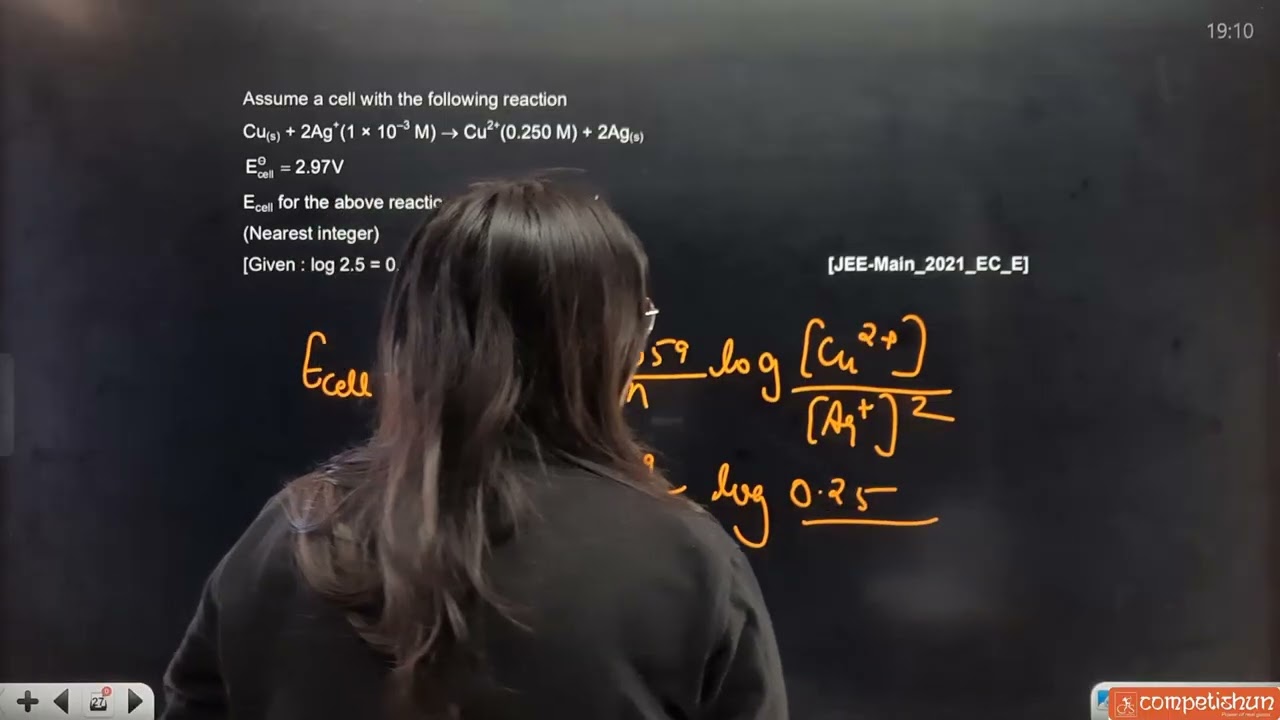 19:10
Assume a cell with the following reaction
Cu(s) + 2Ag⁺(1 × 10⁻³ M) → Cu²⁺(0.250 M) + 2Ag(s)
E⊖cell = 2.97V
Ecell for the above
(Nearest integer)
[Given : log 2.5 = 0. [JEE-Main_2021_EC_E]
Ecell 59/n log [Cu²⁺]/[Ag⁺]²
9 log 0.25
27
competishun